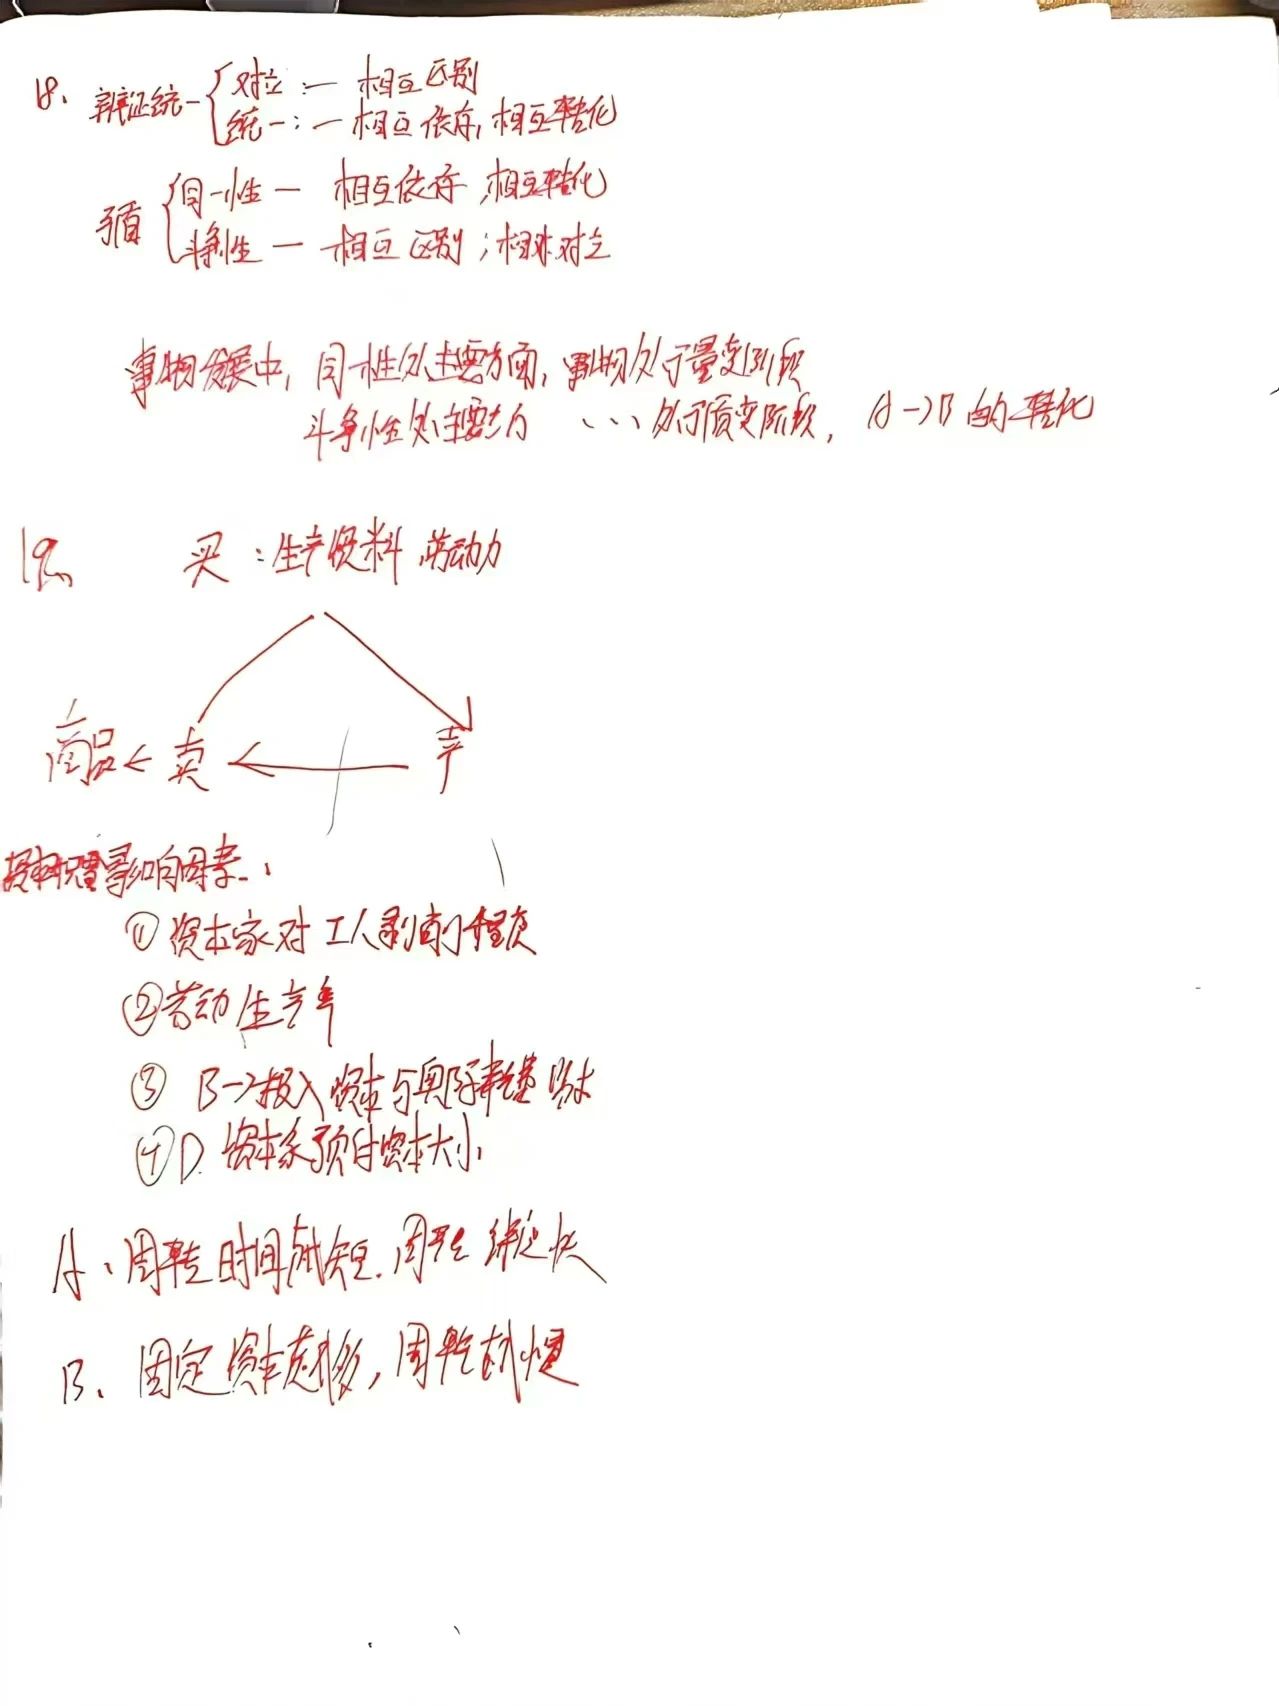 18. 辨证统一 { 对立:— 相互区别
统一:— 相互依存,相互转化
矛盾 { 同一性 — 相互依存,相互转化
斗争性 — 相互区别;相对立
事物发展中,同一性处主要方面,事物处于量变阶段
斗争性处主要方 … 处于质变阶段, A→B 的转化
19. 买:生产资料 劳动力
商品 ← 卖 ← 产
影响因素.
① 资本家对工人剥削程度
② 劳动生产率
③ B→投入资本与实际耗费资本
④ D. 资本家预付资本大小
A、周转时间越短.周转 越快
B、固定资本越多,周转越慢